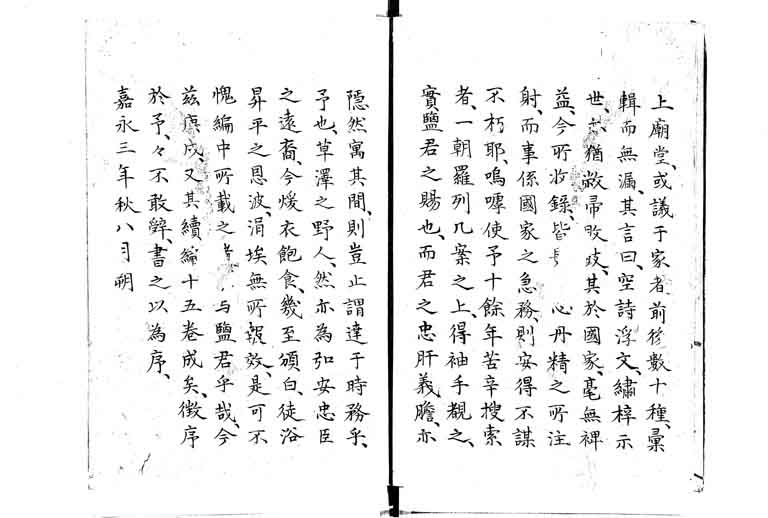 上廟堂、或議于家者、前後數十種、彙
輯而無漏、其言曰、空詩浮文、繡梓示
世、猶敝帚敗皷、其於國家、毫無裨
益、今所收錄、皆 心丹精之所注
射、而事係國家之急務、則安得不謀
不朽耶、嗚嘑使予十餘年苦辛搜索
者、一朝羅列几案之上、得袖手覩之、
實鹽君之賜也、而君之忠肝義膽、亦
隱然寓其間、則豈止謂達于時務乎、
予也、草澤之野人、然亦為弘安忠臣
之遠裔、今煖衣飽食、幾至頒白、徒浴
昇平之恩波、涓埃無所報效、是可不
愧編中所載之 与鹽君乎哉、今
茲庚戌、又其續編十五卷成矣、徵序
於予、々不敢辤、書之以為序、
嘉永三年秋八月朔